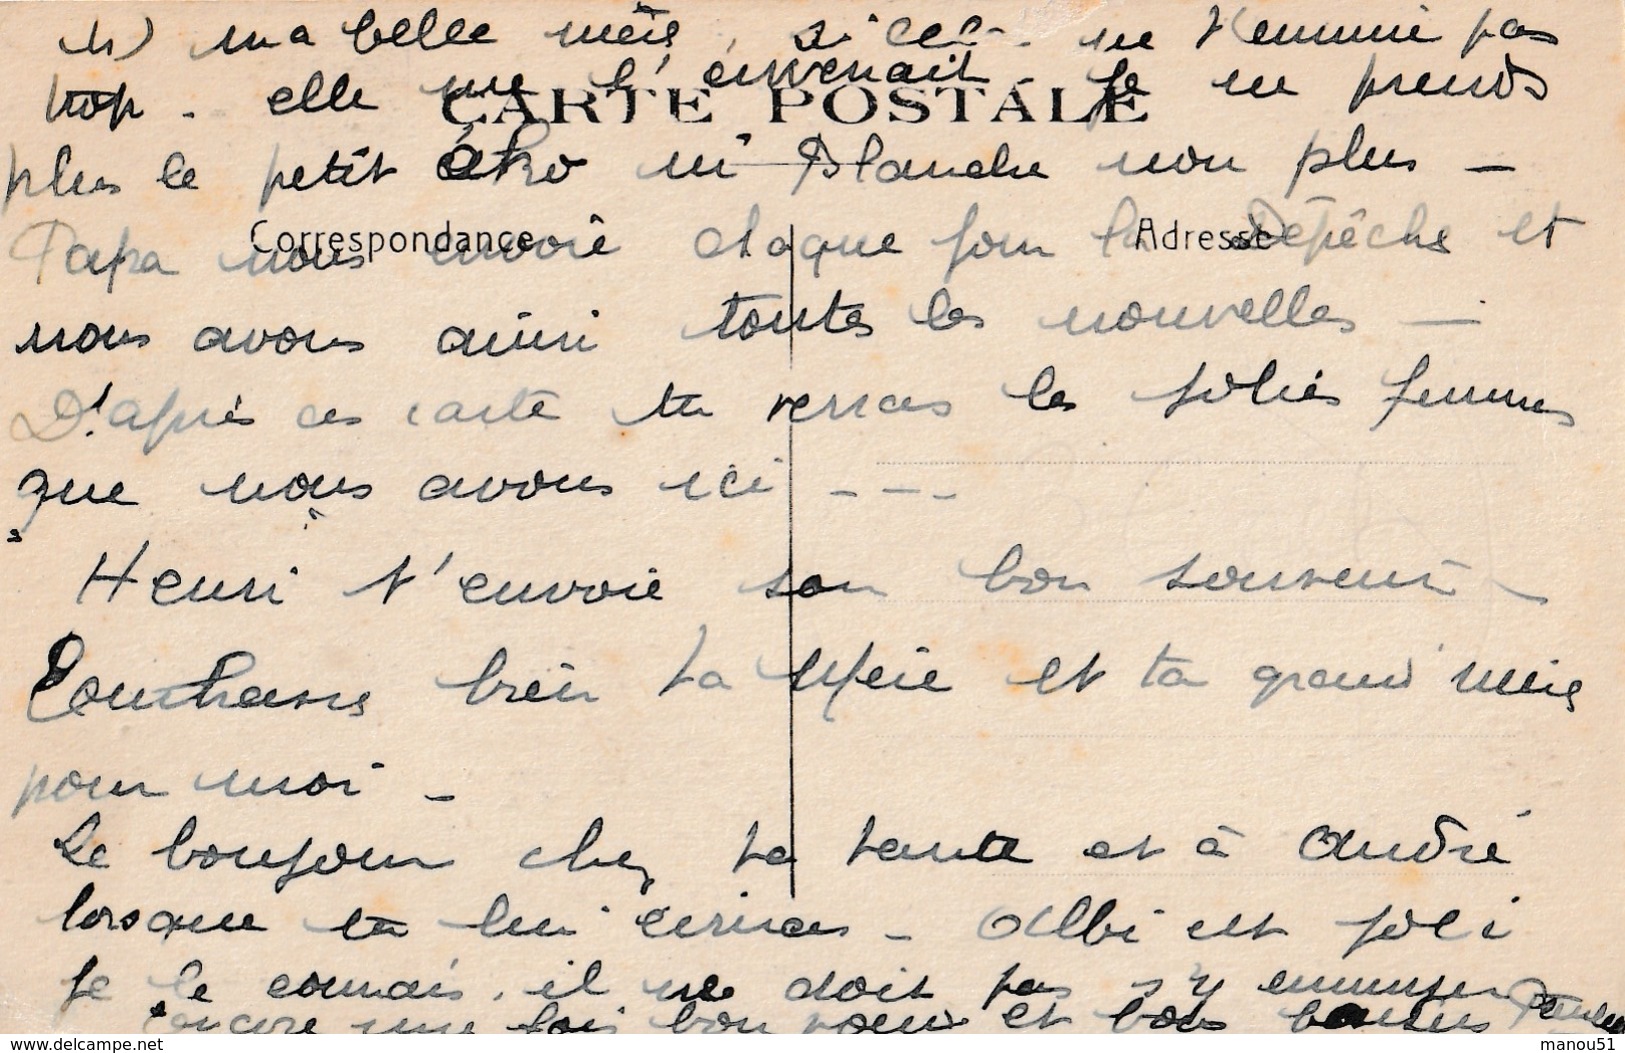 ma belle mère, si cela ne t'ennuie pas
trop - elle me l'enverrait - Je ne prends
CARTE POSTALE
plus le petit écho ni Blanche non plus -
Correspondance
Adresse
Papa nous envoie chaque jour la Dépêche et
nous avons ainsi toutes les nouvelles -
D'après ces carte tu verras les jolies femmes
que nous avons ici - - -
Henri t'envoie son bon souvenir -
Embrasse bien ta Mère et ta grand'mère
pour moi -
Le bonjour chez ta tante et à André
lorsque tu lui écriras - Albi est joli
Je le connais, il ne doit pas s'y ennuyer
encore une fois bon voeux et bons baisers
delcampe.net
manou51